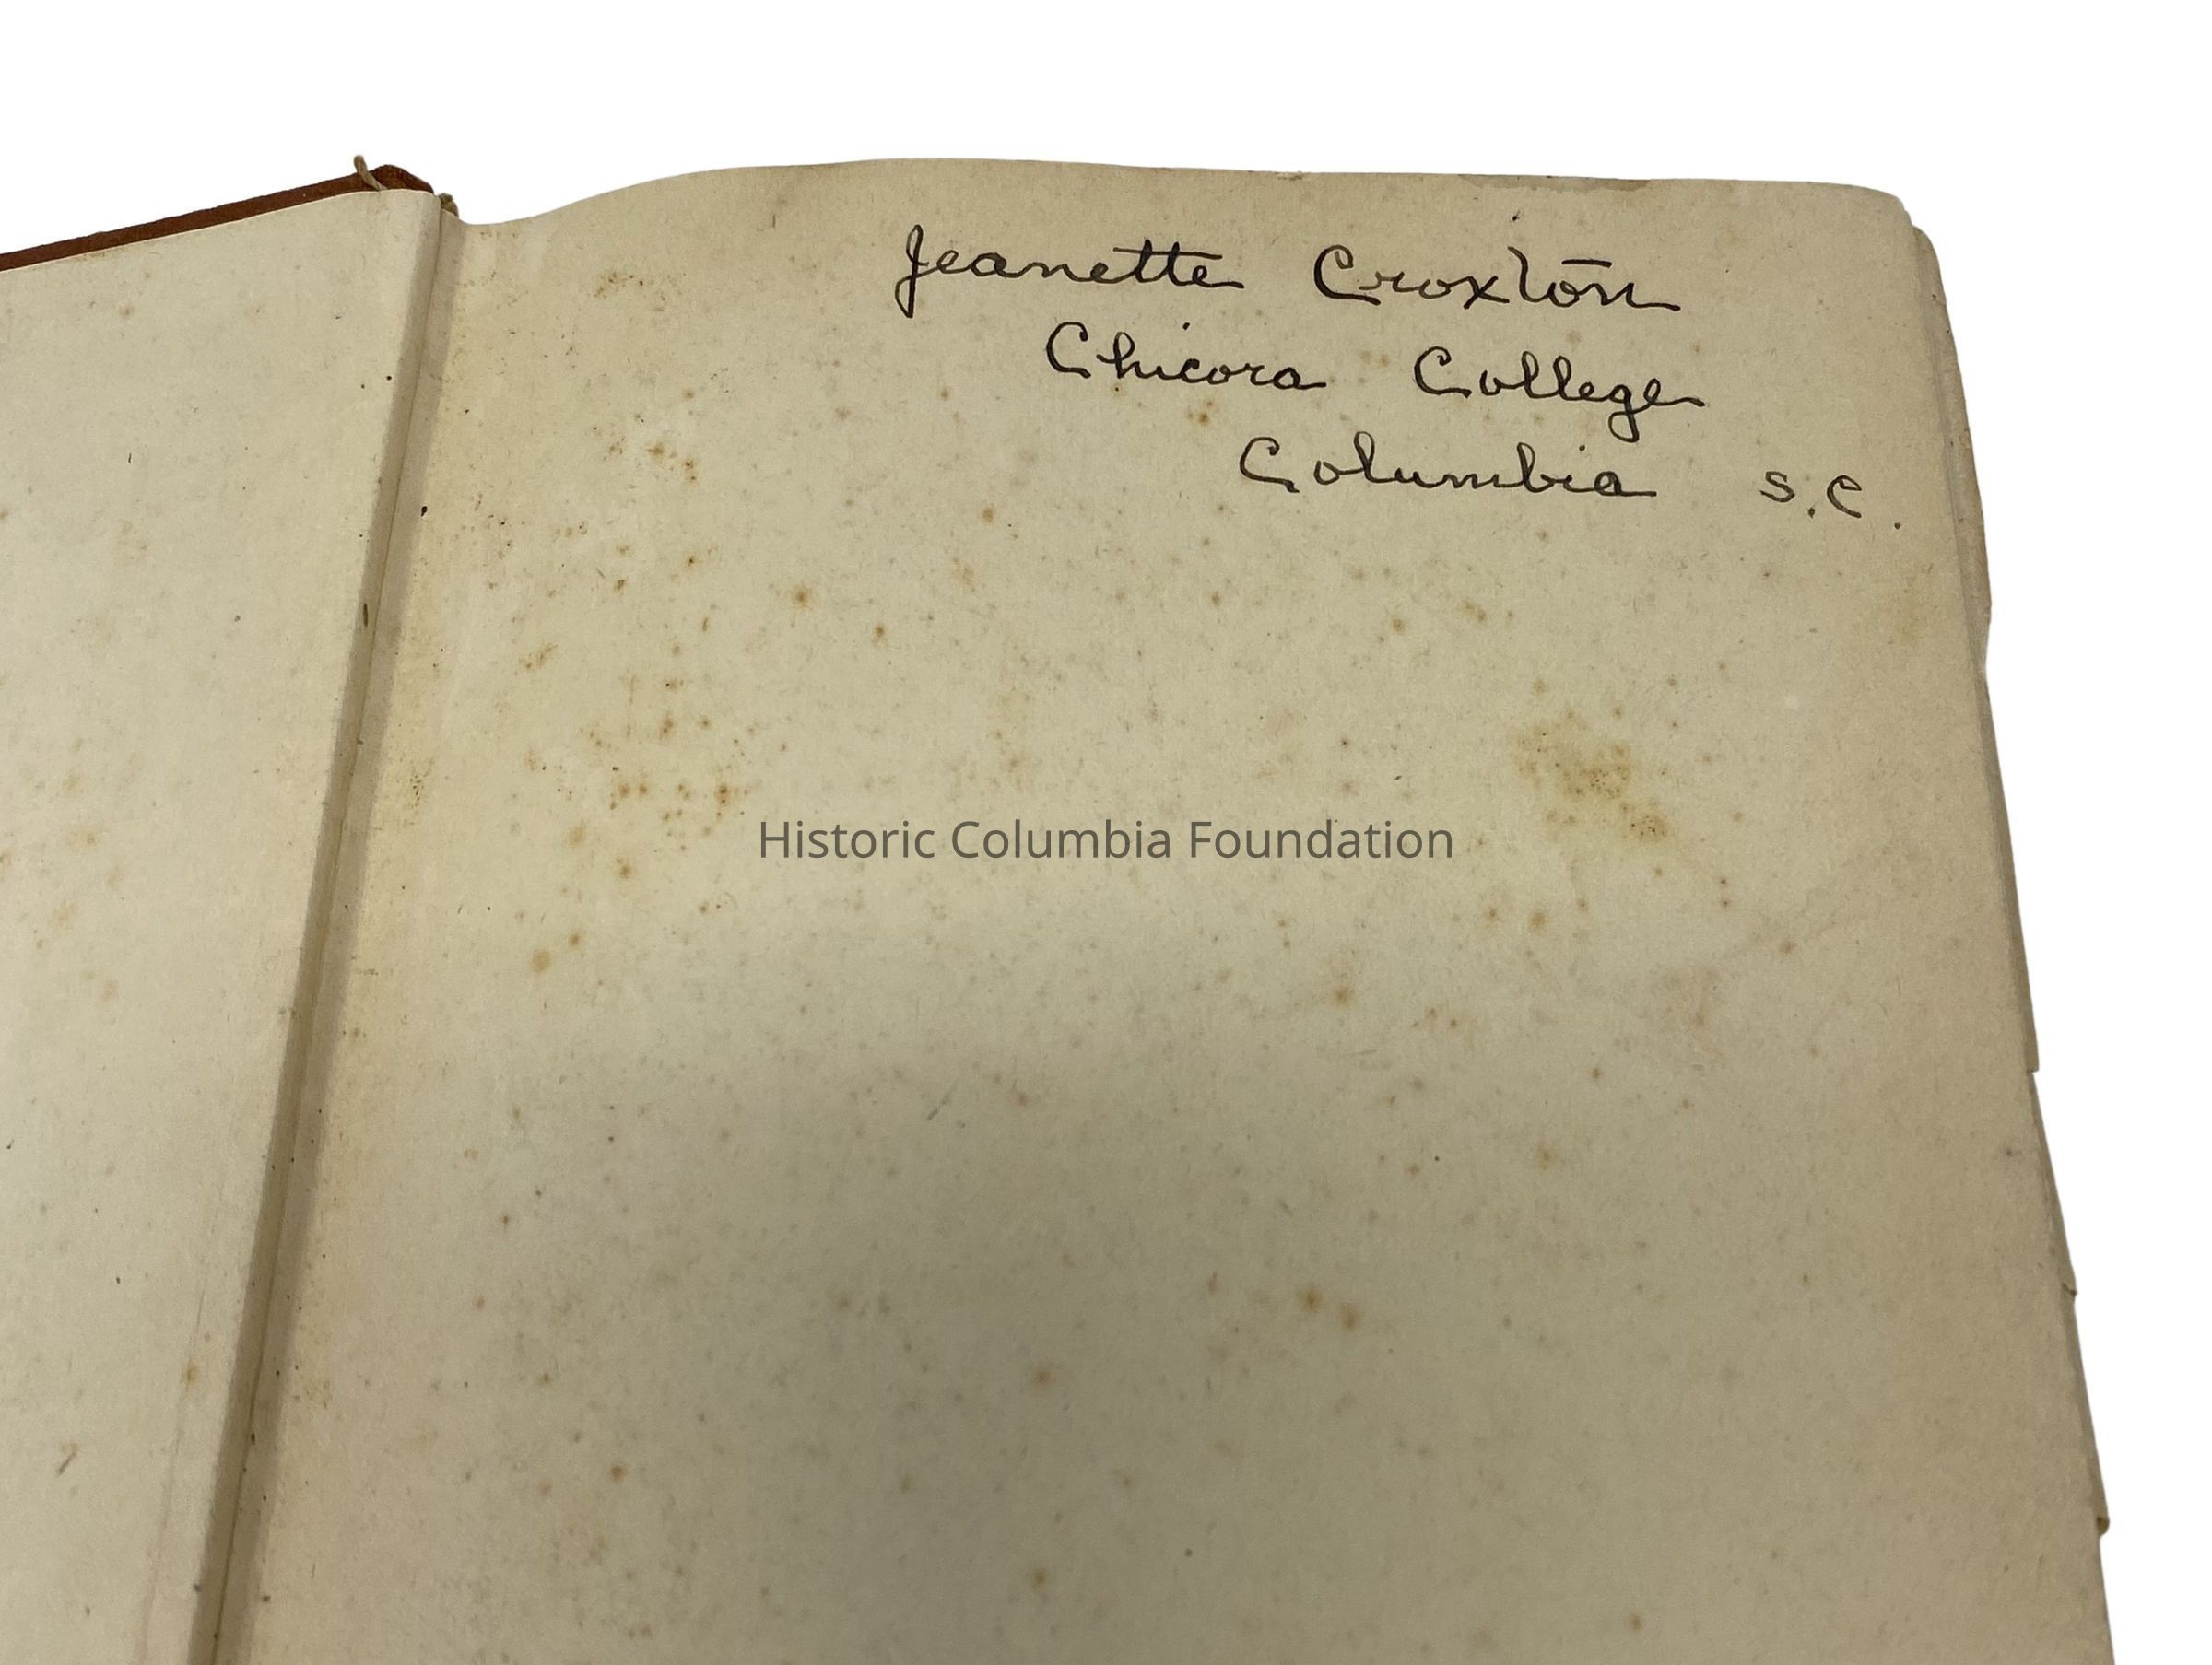 Jeanette Croxton
Chicora College
Columbia S.C.
Historic Columbia Foundation